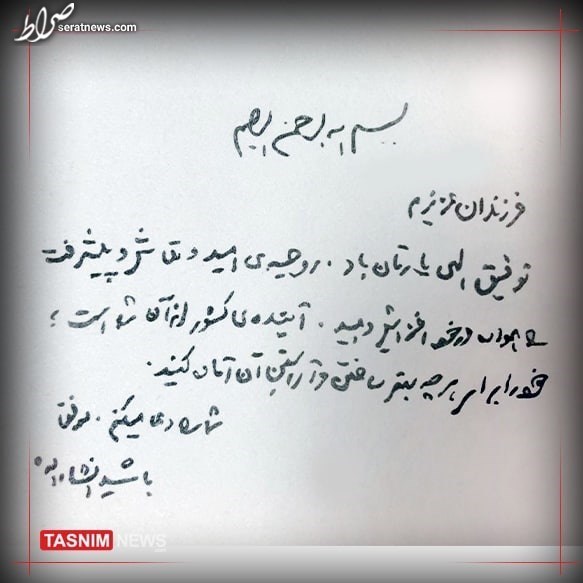 صراط
seratnews.com
بسم الله الرحمن الرحیم
فرزندان عزیزم
توفیق الهی یارتان باد. روحیه‌ی امید و تلاش و پیشرفت
را همواره در خود افزایش دهید. آینده‌ی کشور از آن شما است؛
خود را برای هر چه بهتر ساختن و آراستن آن آماده کنید.
شما را دعا میکنم. موفق
باشید انشاءالله
TASNIM NEWS